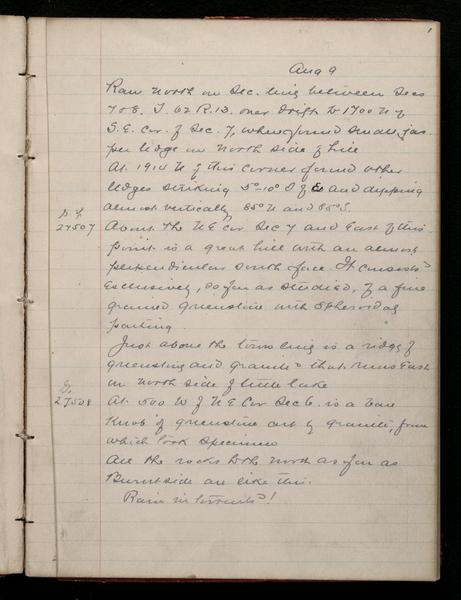 1
Aug 9
Ran North on Sec. line between Secs
7 & 8. T. 62 R. 13. over drift to 1700 N of
S.E. Cor. of Sec. 7, where found small jas-
per ledge on North side of hill
At 1914 N of this corner found other
ledges striking 5°-10° S of E and dipping
almost vertically 85° N and 85° S.
27507 About the NE cor Sec 7 and East of this
point is a great hill with an almost
perpendicular south face. It consists
exclusively, so far as studied, of a fine
grained greenstone with spheroidal
parting.
Just above the town line is a ridge of
greenstone and granite that runs East
on North side of little lake
27508 At 500 W of NE Cor Sec 6. is a
knob of greenstone cut by granite, from
which took specimen
All the rocks to the North as far as
Burntside are like this.
Rain in torrents!